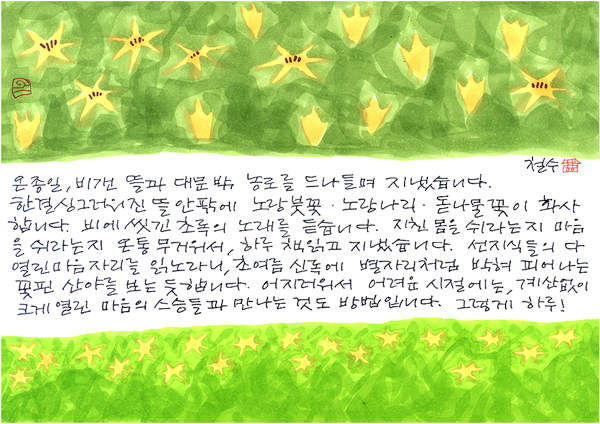 철수
온종일, 비개인 뜰과 대문밖, 농로를 드나들며 지냈습니다.
한결싱그러워진 뜰 안팎에 노랑붓꽃·노랑나리·돌나물꽃이 화사
합니다. 비에 씻긴 초록의 노래를 듣습니다. 지친 몸을 쉬라는지 마음
을 쉬라는지 온통 무거워서, 하루 책읽고 지냈습니다. 선지식들의 다
열린마음자리를 읽노라니, 초여름 신록에 별자리처럼 박혀 피어나는
꽃핀 산야를 보는 듯합니다. 어지러워서 어려운 시절에는, 계산없이
크게 열린 마음의 스승들과 만나는 것도 방법입니다. 그렇게 하루!